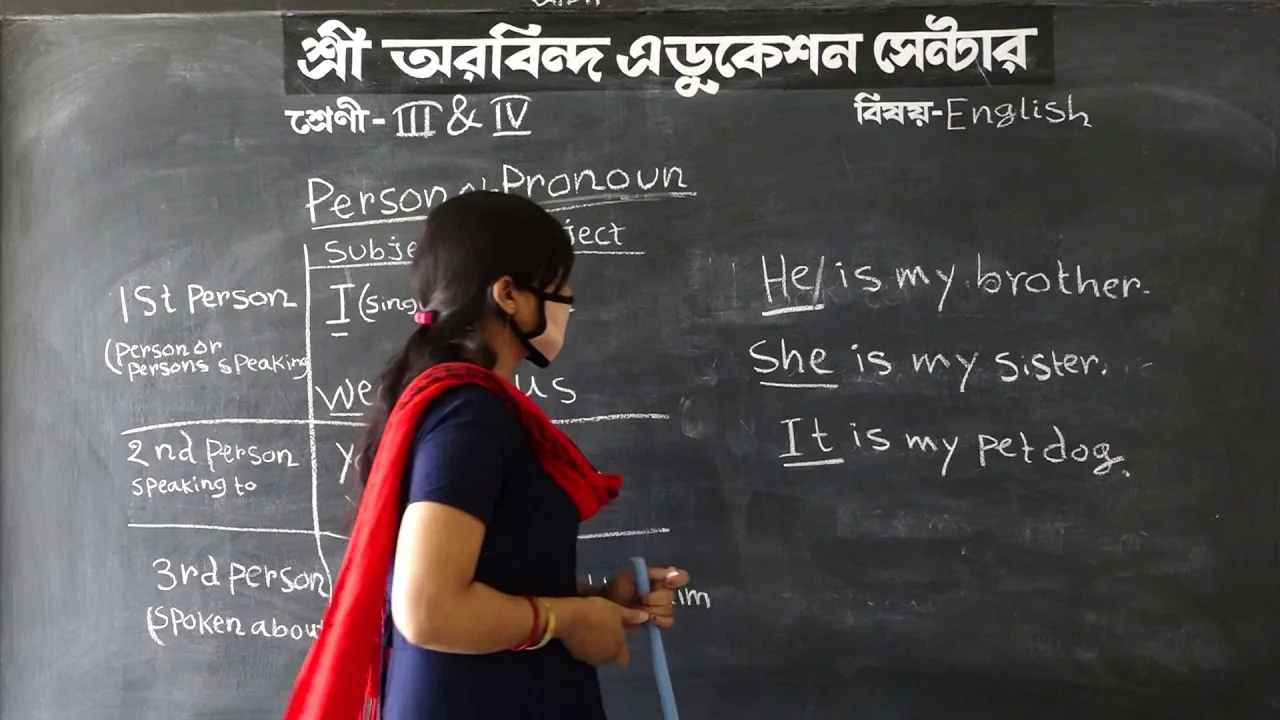 শ্রী অরবিন্দ এডুকেশন সেন্টার
শ্রেণী- III & IV
বিষয়- English
Person Pronoun
1St Person
I
(person or
persons speaking
we us
2nd person
speaking to
3rd person
(spoken about
He/ is my brother.
She is my sister.
It is my pet dog.